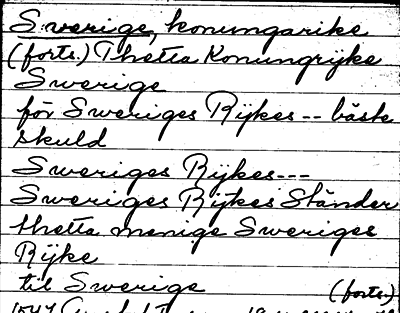 Sverige, konungarike
(forts.) Thetta Konungrijke
Swerige
för Sweriges Rijkes -- bäste
skuld
Sweriges Rijkes ---
Sweriges Rijkes Ständer
thetta menige Sweriges
Rijke
til Swerige (forts.)
1547